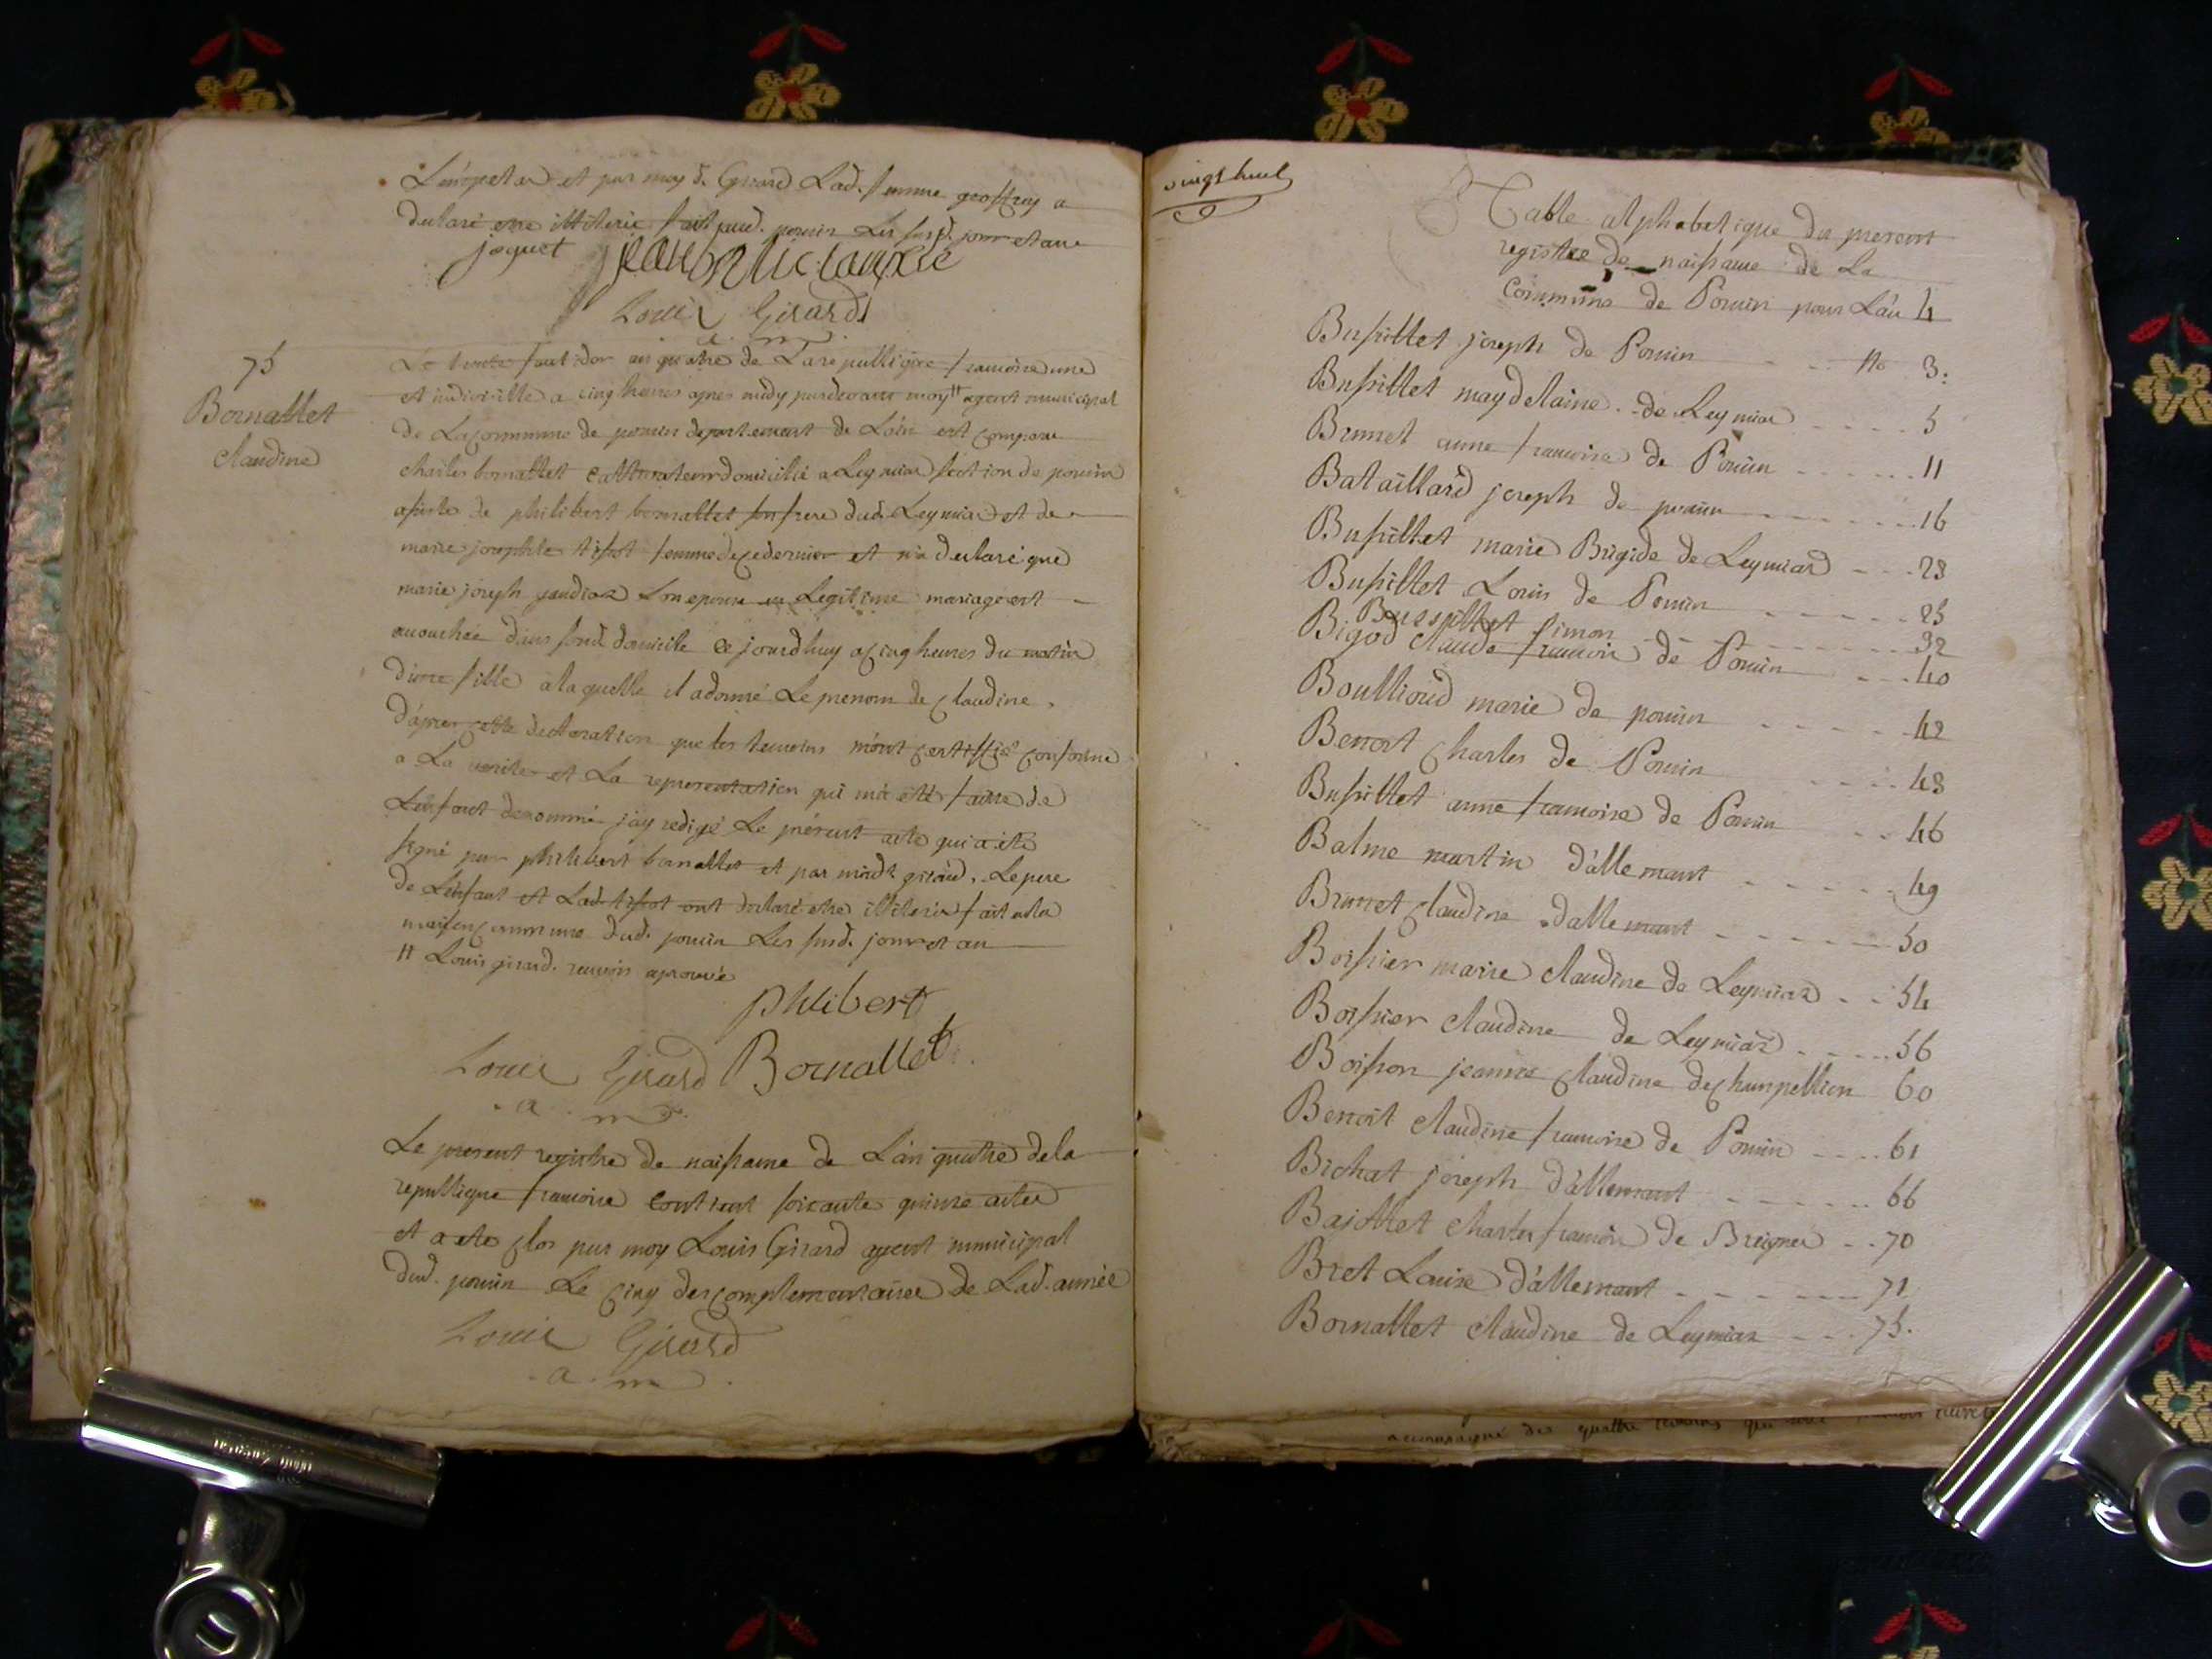 et par moy d. Girard Lad. femme geoffray a
declaré etre illiterée fait aud. pouin Les susd. jour et an
joguet
Louis Girard
a. m.
75
Bornattet
claudine
Le trente fructidor an quatre de La republique francoise une
et indivisible a cinq heures apres midy pardevant moy # agent municipal
de La commune de pouin departement de L'ain est comparu
charles bornattet cultivateur domicilié a Leymiar section de pouin
assisté de philibert bornattet son frere dud. Leymiar et de
marie josephte tissot femme de ce dernier et m'a declaré que
marie joseph gaudioz son epouse en Legitime mariage est
accouchée dans sond. domicile ce jourdhuy a cinq heures du matin
d'une fille a laquelle il a donné Le prenom de claudine.
d'apres cette declaration que les temoins m'ont certiffié conforme
a La verité et La representation qui m'a été faitte de
L'enfant denommé jay redigé Le présent acte qui a été
signé par philibert bornattet et par mond. girard. Le pere
de L'enfant et Lad. tissot ont declaré etre illiterés fait a la
maison commune dud. pouin Les susd. jour et an
# Louis girard. renvois aprouvé
Philibert
Louis Girard Bornattet
a. m.
Le present registre de naissance de L'an quatre de la
republique francoise contient soixante quinze actes
et a eté clos par moy Louis Girard agent municipal
dud. pouin Le cinq des complementaires de Lad. année
Louis Girard
a. m.
vingt huit
Table alphabetique du present
registre de naissance de La
Commune de Pouin pour L'an 4
Bussillet joseph de Pouin No 3.
Bussillet maydelaine de Leymiar 5
Brunet anne francoise de Pouin 11
Bataillard joseph de pouin 16
Bussillet marie Brigide de Leymiar 23
Bussillet Louis de Pouin 25
Boussillet simon 32
Bigod Claude francois de Pouin 40
Boullioud marie de pouin 42
Benoit Charles de Pouin 43
Bussillet anne francoise de Pouin 46
Balme martin d'allemant 49
Brunet claudine dallemant 50
Boissier marie claudine de Leymiaz 54
Boissier claudine de Leymiaz 56
Boisson jeanne claudine de champellien 60
Benoit claudine francoise de Pouin 61
Bichat joseph d'allemant 66
Bajollet charles francois de Breignes 70
Bret Louise d'allemant 71
Bornattet claudine de Leymiaz 75.
accompagné des quattre temoins qui